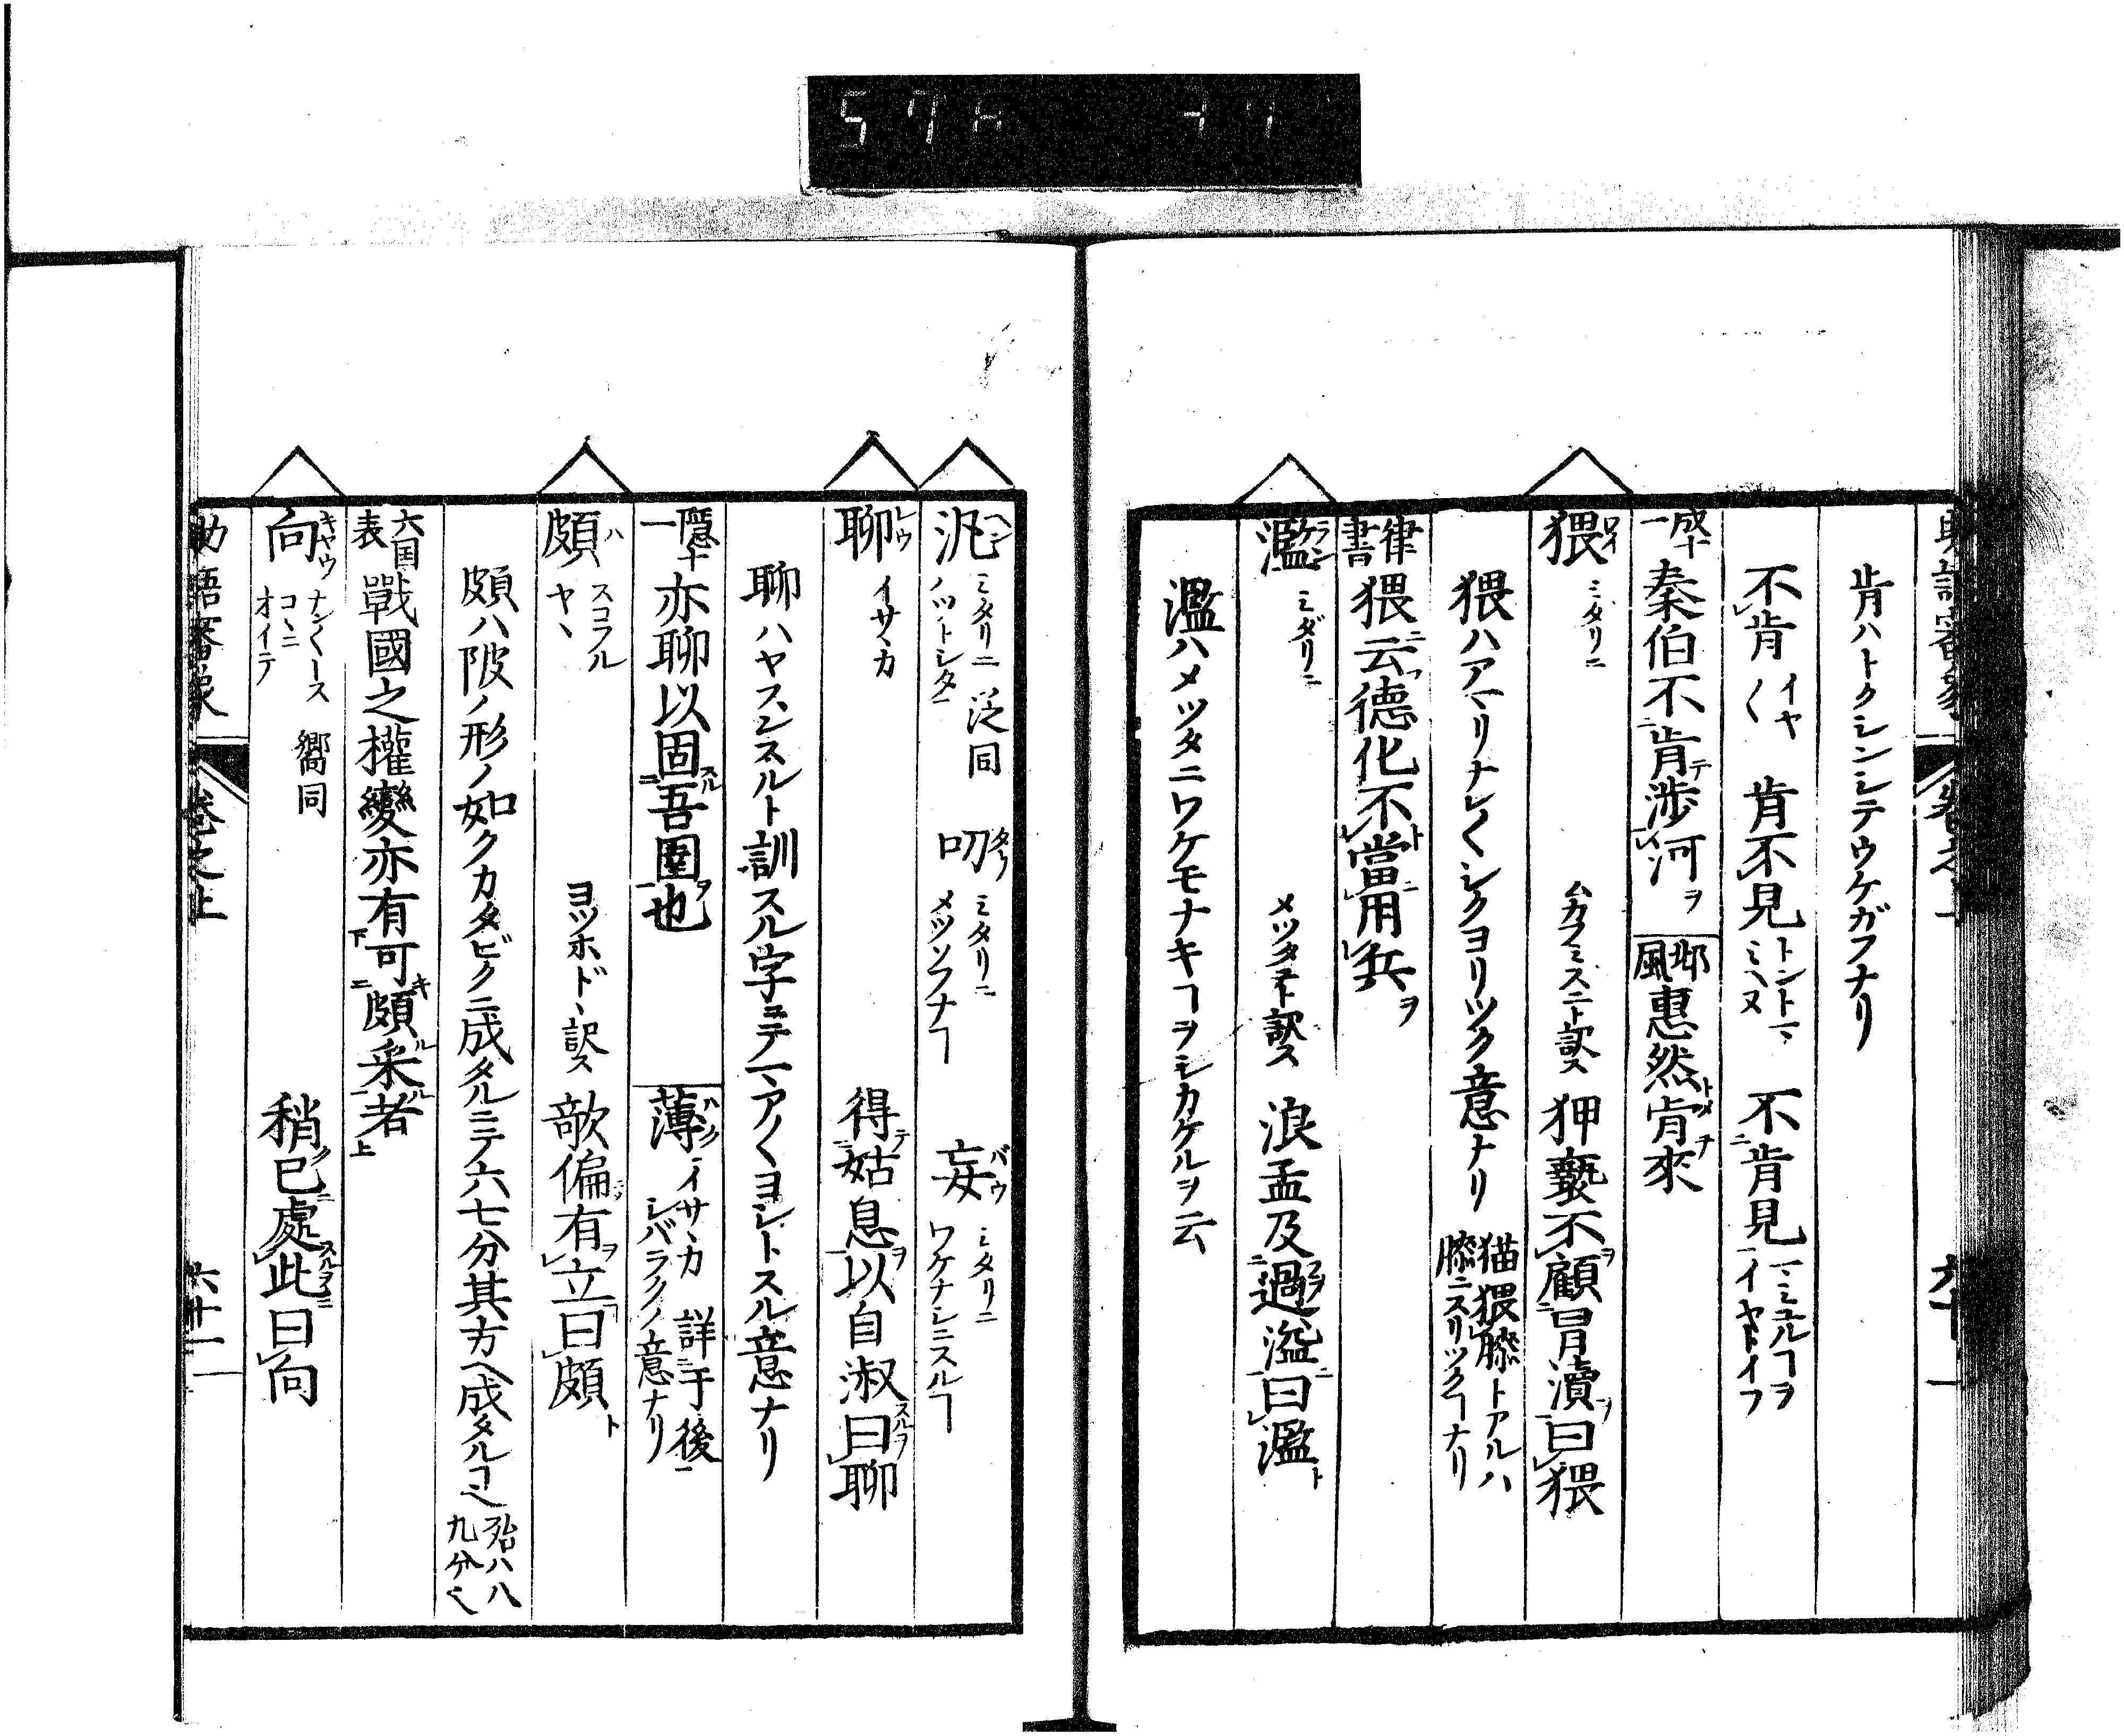 肯ハトクシンシテウケガフナリ
不肯 イヤ〱 肯不見 トントマミヘヌ 不肯見 一ミユルヿヲイヤトイフ
成十一 秦伯不肯テ渉河ヲ 邶風 惠然トメ肯來
猥 ワイ ミダリニ ムカフミズニト訳ス 狎褻不顧ヲ冒瀆ヲ曰猥
猥ハアマリナレ〱シクヨリツク意ナリ 猫猥膝トアルハ膝ニスリツクヿナリ
律書 猥ニ云德化不當用兵ヲ
濫 ラン ミダリニ メツタニト訳ス 浪孟及過溢曰濫ト
濫ハメツタニワケモナキヿヲシカケルヲ云
汎 ハン ミタリニ 泛同 叨 タウ ミタリニ 妄 バウ ミタリニ ワケナシニスルヿ
聊 レウ イサヽカ 得テ姑息ヲ以自淑スルヲ曰聊
聊ハヤスンスルト訓スル字ニテマヽアノ〱ヨシトスル意ナリ
隱十一 亦聊以固スル吾圉ヲ也 薄 ハク イサヽカ シバラクノ意ナリ 詳于後ニ
頗 ハ スコフル ヤヽ ヨツホドヽ訳ス 欹偏有立曰頗ト
頗ハ陂ノ形ノ如クカタビクニ成タルニテ六七分其方ヘ成タルヿ也 殆ハ八九分也
六国表 戰國之權變亦有可キ頗ル采ル者
向 キヤウ ナン〱トス コヽニオイテ 嚮同 稍已處此曰向
卷之上
六十一